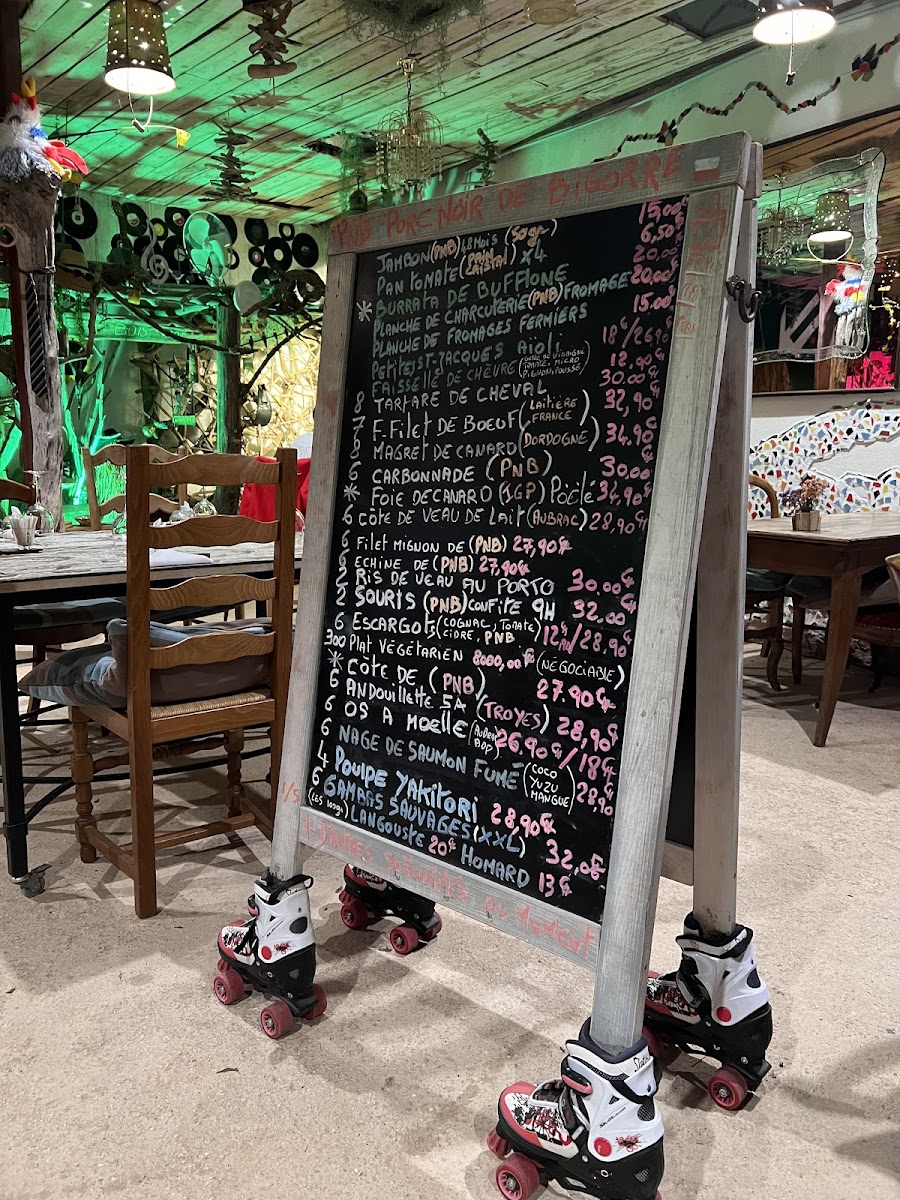 PNB: PORC NOIR DE BIGORRE
JAMBON (PNB) 48 MOIS (50gr) 15,00€
PAN TOMATE (PAIN CRISTAL) X4 6,50€
BURRATA DE BUFFLONE 20,00
* PLANCHE DE CHARCUTERIE (PNB) FROMAGE 20,00€
PLANCHE DE FROMAGES FERMIERS 15,00€
PETITES ST-JACQUES AÏOLI 18€/26,90€
FAISSELLE DE CHÈVRE (TOMATE MICRO PIGNON, POUSSE) 12,90€
8 TARTARE DE CHEVAL 30.00€
7 F. FILET DE BOEUF (LAITIÈRE FRANCE) 32,90€
8 MAGRET DE CANARD (DORDOGNE) 34,90€
6 CARBONNADE (PNB) 30,00
* FOIE DE CANARD (IGP) POÊLÉ 34,90€
6 CÔTE DE VEAU DE LAIT (AUBRAC) 28,90€
6 FILET MIGNON DE (PNB) 27,90€
6 ECHINE DE (PNB) 27,90€
2 RIS DE VEAU AU PORTO 30.00€
2 SOURIS (PNB) CONFITE 9H 32,00€
6 ESCARGOTS (COGNAC, TOMATE, CIDRE, PNB) 12€/28,90€
300 PLAT VÉGÉTARIEN 8000,00€ (NÉGOCIABLE)
* CÔTE DE (PNB) 27.90€
6 ANDOUILLETTE 5A (TROYES) 28,90€
6 OS A MOELLE (AOP) 26,90€/18€
6 NAGE DE SAUMON FUMÉ (COCO YUZU MANGUE) 28,90
4 POULPE YAKITORI 28.90€
6 GAMBAS SAUVAGES (XXL) 32,0€
(LES 100gr) LANGOUSTE 20€ HOMARD 13€
1/5
+ D'AUTRES SPÉCIALITÉS DU MOMENT